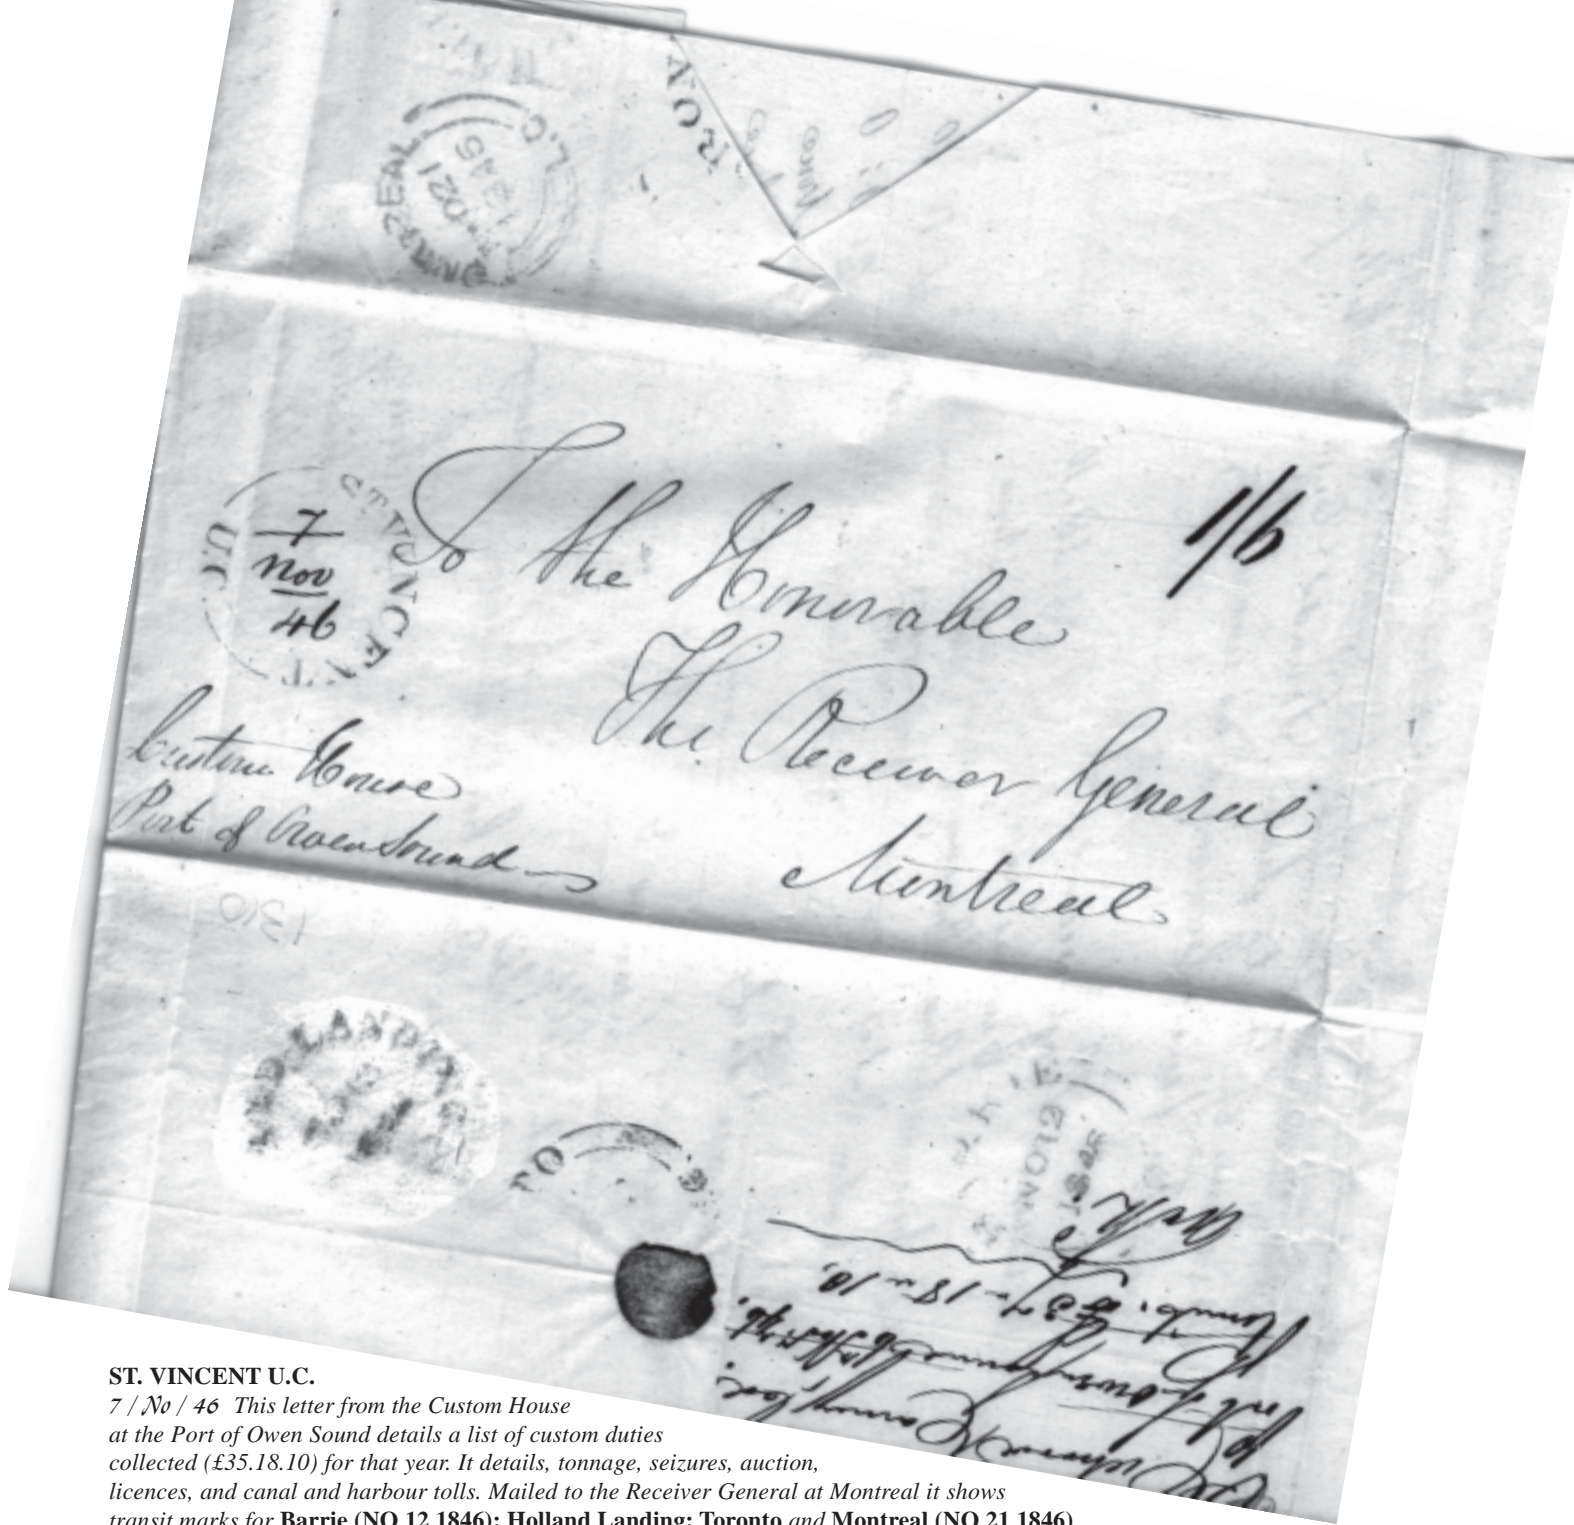 MONTREAL
L.C.
RO
7
Nov
46
ST. VINCENT
U.C.
1/6
To the Honorable
The Receiver General
Montreal
Custom House
Port of Owen Sound
1310
LANDING
TO
NO 12
Port of Owen Sound
ST. VINCENT U.C.
7 / No / 46 This letter from the Custom House
at the Port of Owen Sound details a list of custom duties
collected (£35.18.10) for that year. It details, tonnage, seizures, auction,
licences, and canal and harbour tolls. Mailed to the Receiver General at Montreal it shows
transit marks for Barrie (NO 12 1846); Holland Landing; Toronto and Montreal (NO 21 1846)